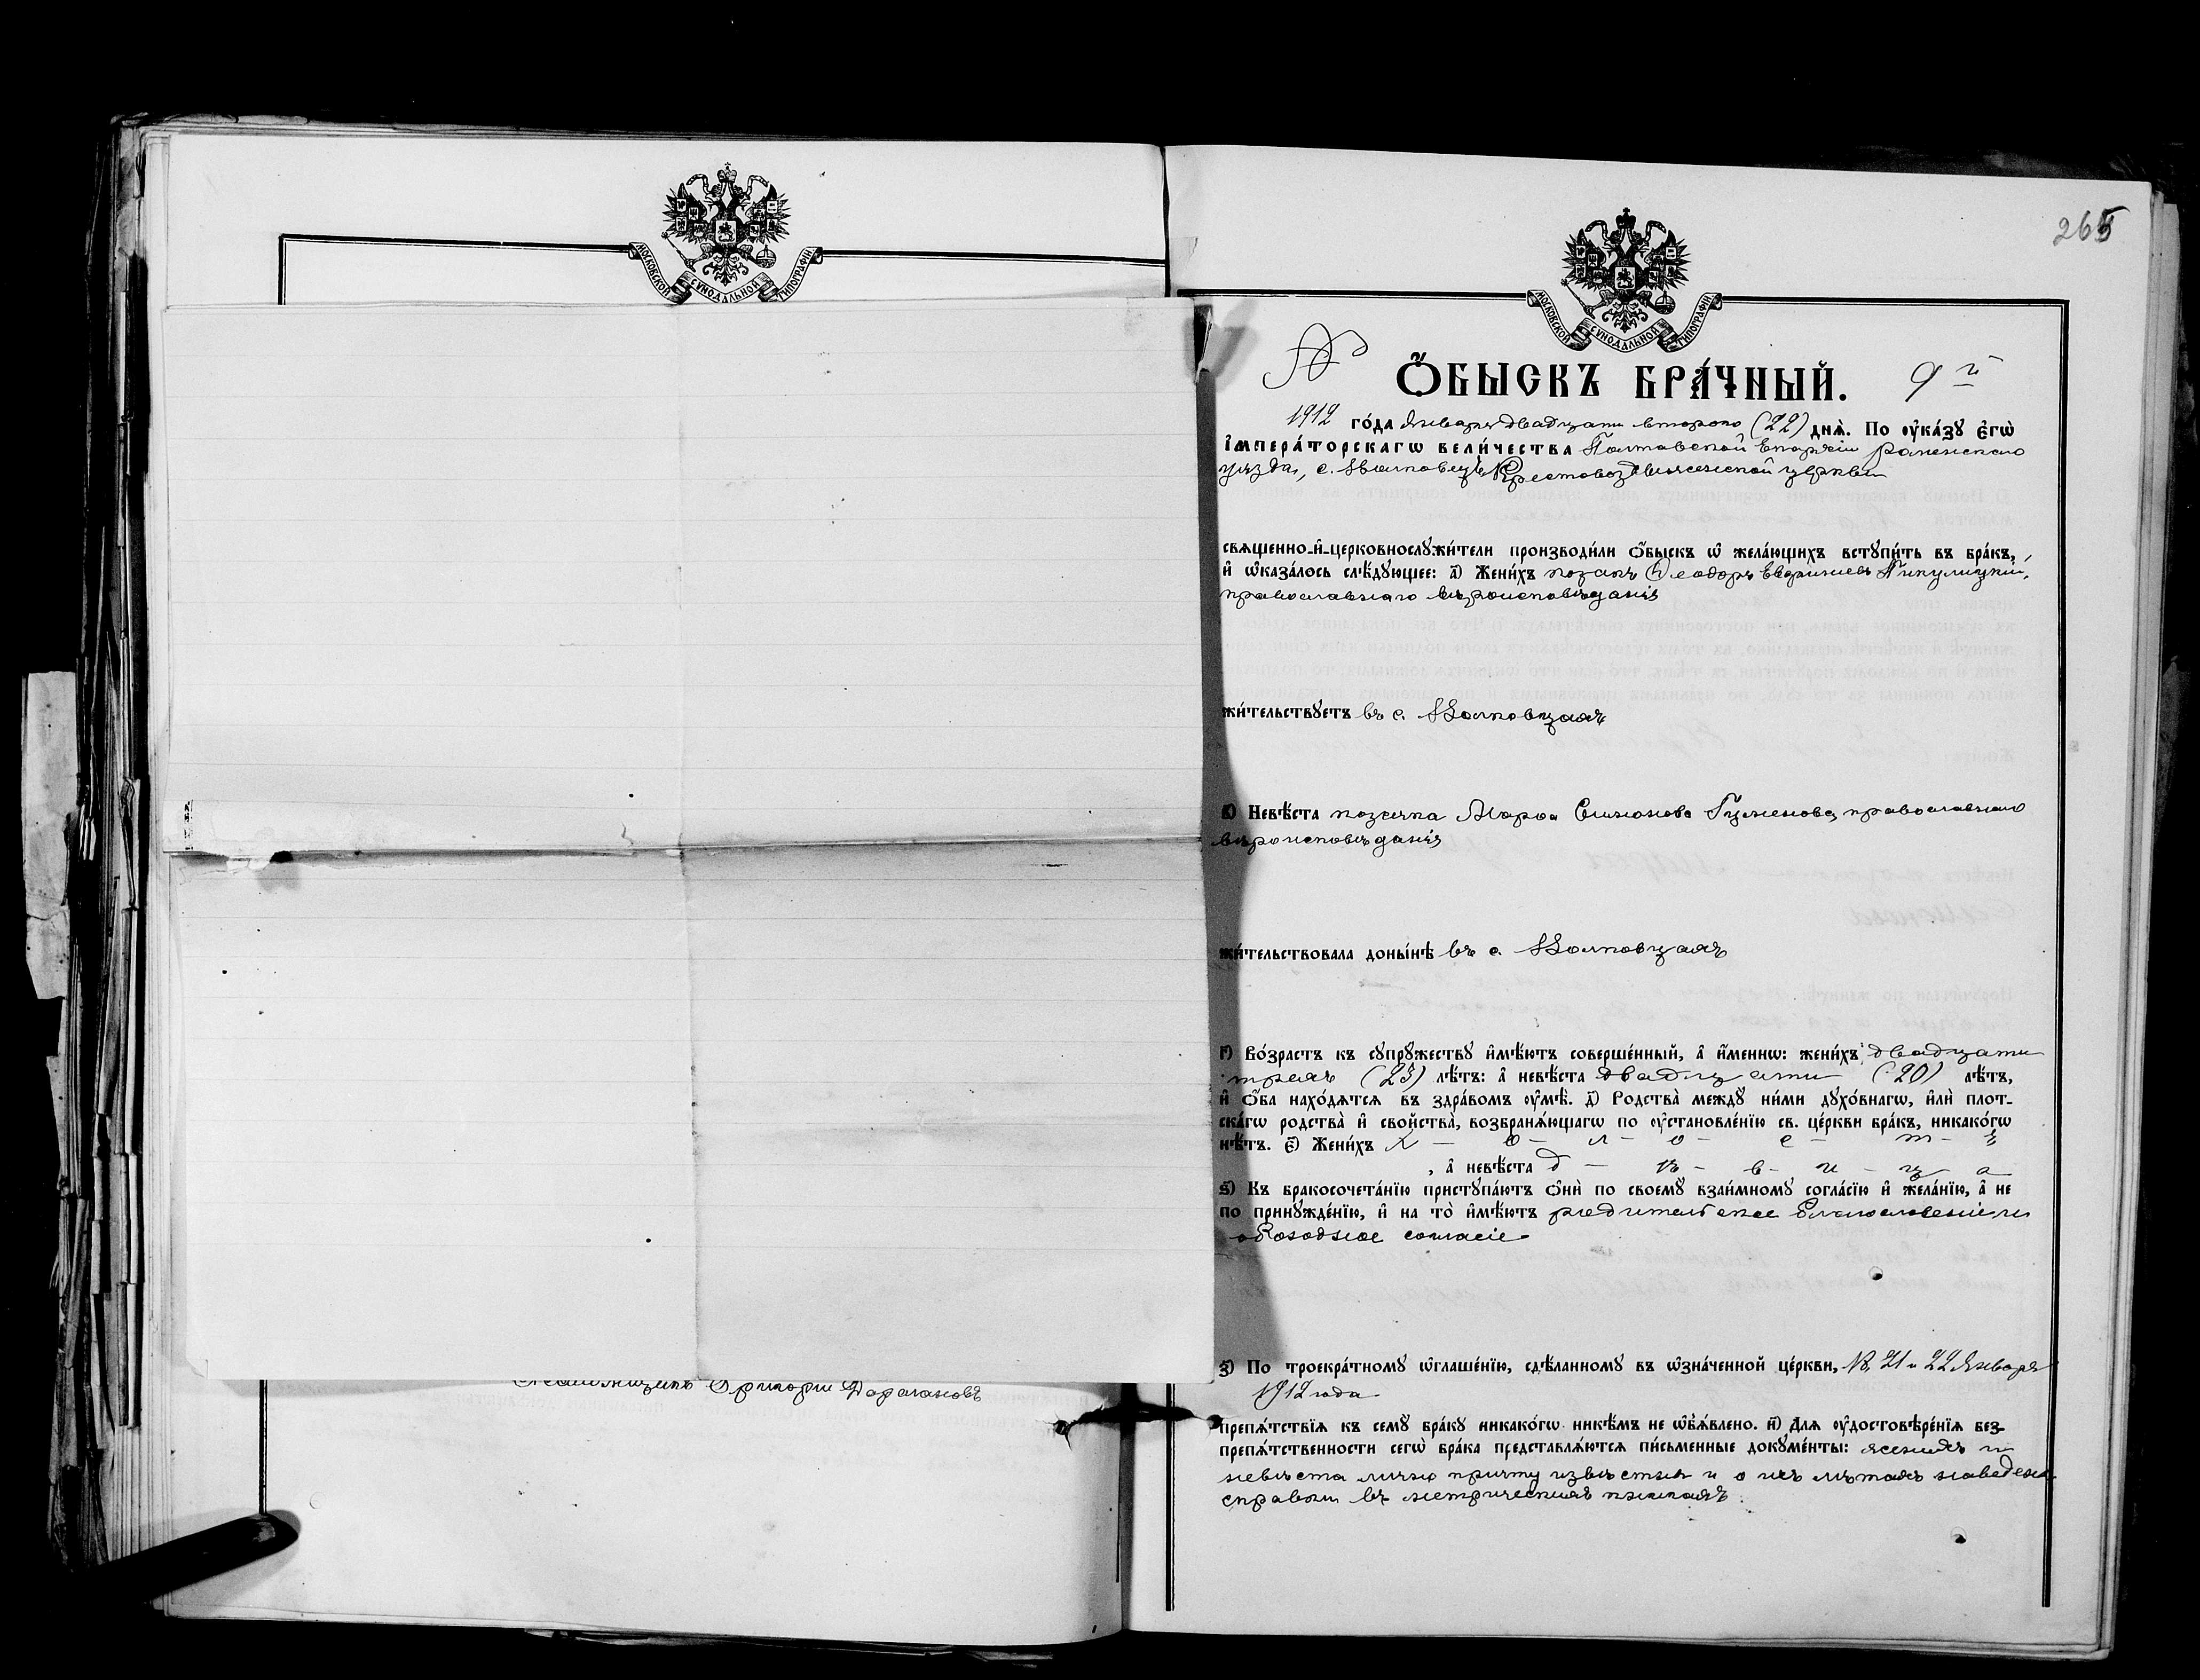 МОСКОВСКОЙ СѴНОДАЛЬНОЙ ТИПОГРАФІИ
Григорій
265
МОСКОВСКОЙ СѴНОДАЛЬНОЙ ТИПОГРАФІИ
№ Ѻ҆БЫСКЪ БРА́ЧНЫЙ. 9й
1912 го́да Января двадцать второго (22) днѧ̀. По ᲂу҆ка́зꙋ є҆гѡ̀
І҆мпера́торскагѡ вели́чества Полтавской Епархіи Роменскаго
уѣзда, с. Волковецъ Крестовоздвиженской церкви
свѧщенно-и҆-церковнослꙋжи́тели производи́ли ѻ҆́быскъ ѡ҆ жела́ющихъ встꙋпи́ть въ бра́къ,
и҆ ѡ҆каза́лось слѣ́дꙋющее: а҃) Жени́хъ козакъ Ѳеодоръ
православнаго вѣроисповѣданія
жи́тельствꙋетъ въ с. Волковцахъ
в҃) Невѣ́ста козачка Симонова православнаго
вѣроисповѣданія
жи́тельствовала доны́нѣ въ с. Волковцахъ
г҃) Во́зрастъ къ сꙋпрꙋжествꙋ и҆мѣ́ютъ соверше́нный, а҆ и҆́меннѡ: жени́хъ двадцати
трехъ (23) лѣ́тъ: а҆ невѣ́ста двадцати (20) лѣ́тъ,
и҆ ѻ҆́ба нахо́дѧтсѧ въ здра́вомъ ᲂу҆мѣ̀. д҃) Родства̀ междꙋ ни́ми дꙋхо́внагѡ, и҆лѝ плот-
ска́гѡ родства̀ и҆ свойства̀, возбранѧ́ющагѡ по ᲂу҆становле́нїю св. це́ркви бра́къ, никако́гѡ
нѣ́тъ. є҃) Жени́хъ х - о - л - о - с - т - ъ
, а҆ невѣ́ста д - ѣ - в - и - ц - а
ѕ҃) Къ бракосочета́нїю пристꙋпа́ютъ ѻ҆нѝ по своемꙋ̀ взаи́мномꙋ согла́сїю и҆ жела́нїю, а҆ не
по принꙋжде́нїю, и҆ на то̀ и҆мѣ́ютъ родительское благословеніе и
обоюдное согласіе
з҃) По троекра́тномꙋ ѡ҆глаше́нїю, сдѣ́ланномꙋ въ ѡ҆зна́ченной це́ркви, 21 и 22 Января
1912 года
препѧ́тствїѧ къ семꙋ̀ бра́кꙋ никако́гѡ никѣ́мъ не ѡ҆бъѧ́влено. и҃) Длѧ ᲂу҆достовѣре́нїѧ без-
препѧ́тственности сегѡ̀ бра́ка представлѧ́ютсѧ пи́сьменные докꙋме́нты: женихъ и
невѣста лично причту извѣстны и о ихъ лѣтахъ наведены
справки въ метрическихъ книгахъ.